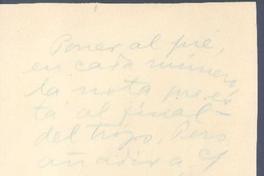 Poner al pié,
en cada número
la nota que es
tá al final
del trozo, Pero
añadira, y